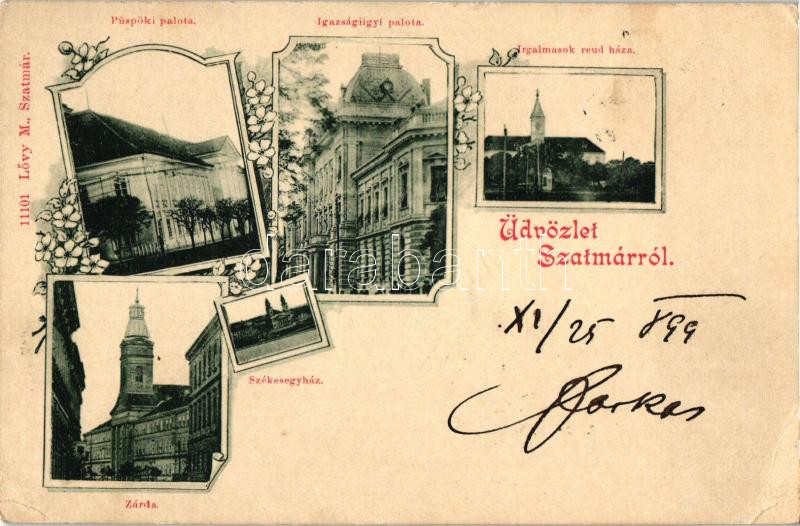 Püspöki palota.
Igazságiigyi palota.
Irgalmasok reud háza.
11101 Lővy M., Szatmár.
Üdvözlet
Szatmárról.
darabanth
XI/25 899
Farkas
Székesegyház.
Zárda.